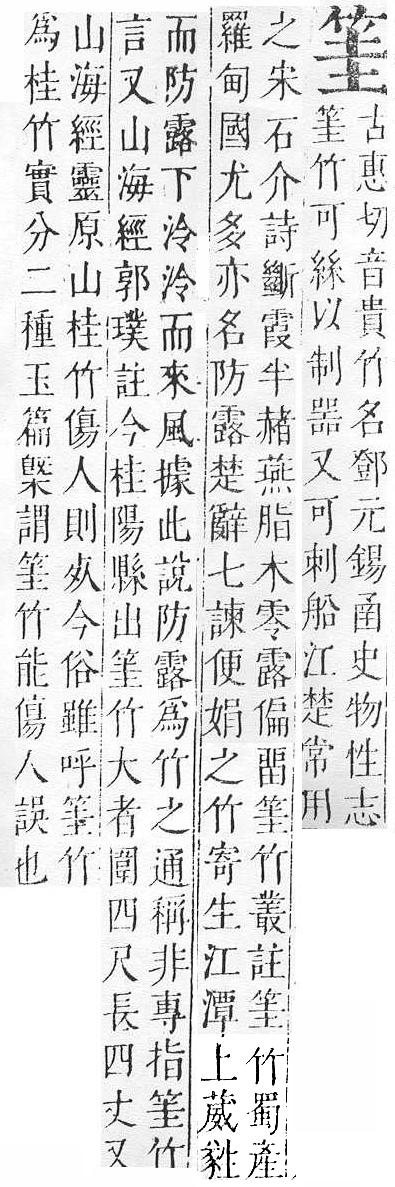 筀
古惠切音貴竹名鄧元錫函史物性志
筀竹可絲以制器又可刺船江楚常用
之宋石介詩斷霞半赭燕脂木零露偏畱筀竹叢註筀竹蜀產
羅甸國尤多亦名防露楚辭七諫便娟之竹寄生江潭上葳蕤
而防露下泠泠而來風據此說防露爲竹之通稱非專指筀竹
言又山海經郭璞註今桂陽縣出筀竹大者圍四尺長四丈又
山海經靈原山桂竹傷人則死今俗雖呼筀竹
爲桂竹實分二種玉篇槩謂筀竹能傷人誤也